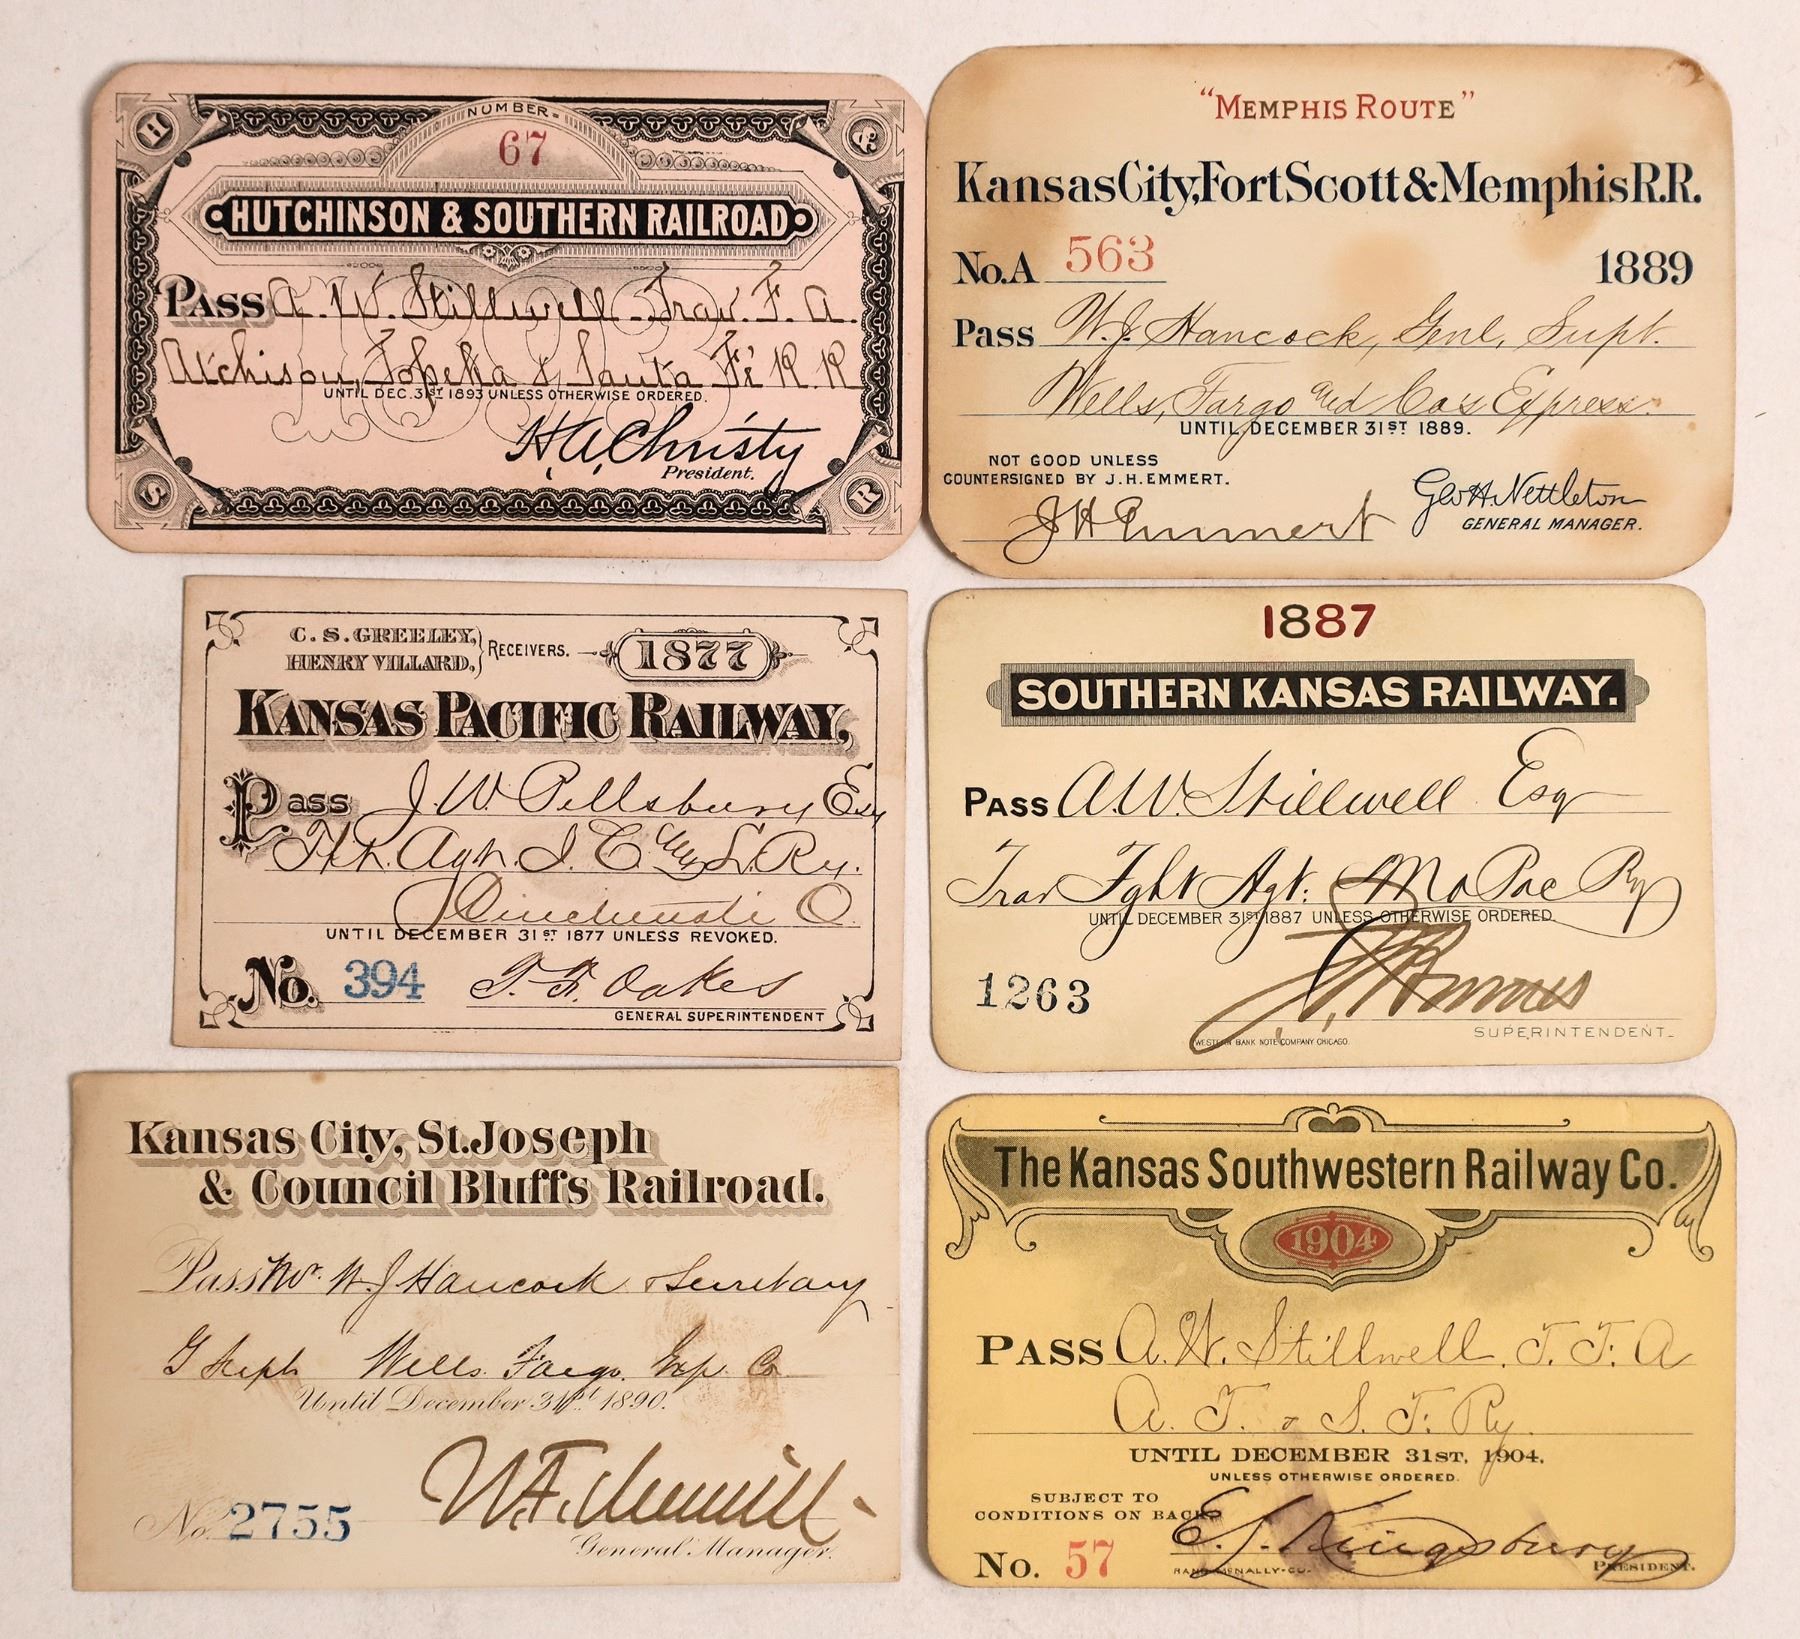 NUMBER
67
H
&
HUTCHINSON & SOUTHERN RAILROAD
PASS A. W. Stillwell. Trav. F. A.
Atchison, Topeka & Santa Fé R. R
UNTIL DEC. 31ST 1893 UNLESS OTHERWISE ORDERED.
H. A. Christy
President.
S
R
"MEMPHIS ROUTE"
Kansas City, Fort Scott & Memphis R.R.
No. A 563 1889
Pass W. J. Hancock, Genl, Supt.
Wells, Fargo and Co's Express.
UNTIL DECEMBER 31ST 1889.
NOT GOOD UNLESS
COUNTERSIGNED BY J. H. EMMERT.
J H Emmert
Geo H. Nettleton
GENERAL MANAGER.
C. S. GREELEY,
HENRY VILLARD, RECEIVERS. 1877
KANSAS PACIFIC RAILWAY,
Pass J. W. Pillsbury Esq
Tkt. Agt. I. C. & L. Ry.
Cincinnati O
UNTIL DECEMBER 31ST 1877 UNLESS REVOKED.
No. 394 T. F. Oakes
GENERAL SUPERINTENDENT
1887
SOUTHERN KANSAS RAILWAY.
PASS A. W. Stillwell Esq
Trav Fght Agt. Mo Pac Ry
UNTIL DECEMBER 31ST 1887 UNLESS OTHERWISE ORDERED.
1263
SUPERINTENDENT.
WESTERN BANK NOTE COMPANY CHICAGO.
Kansas City, St. Joseph
& Council Bluffs Railroad.
Pass Mr. W J Hancock Secretary
G Supt Wells Fargo Exp. Co
Until December 31st 1890.
No. 2755
General Manager.
The Kansas Southwestern Railway Co.
1904
PASS A. W. Stillwell, T. F. A
A. T. & S. F. Ry.
UNTIL DECEMBER 31ST, 1904.
UNLESS OTHERWISE ORDERED.
SUBJECT TO
CONDITIONS ON BACK
E. S. Kingsbury
No. 57 RAND MCNALLY-CO. PRESIDENT.